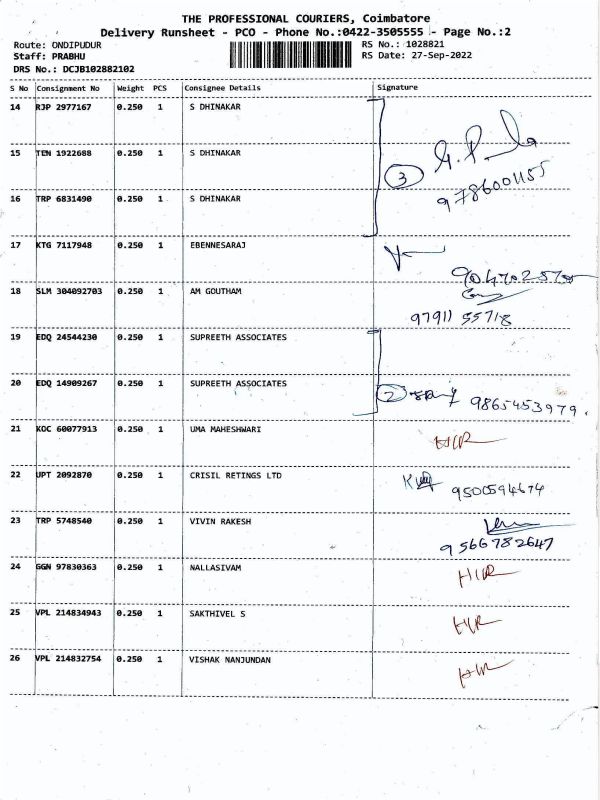 THE PROFESSIONAL COURIERS, Coimbatore
Delivery Runsheet - PCO - Phone No.:0422-3505555 - Page No.:2
Route: ONDIPUDUR RS No.: 1028821
Staff: PRABHU RS Date: 27-Sep-2022
DRS No.: DCJB102882102
S No Consignment No Weight PCS Consignee Details Signature
14 RJP 2977167 0.250 1 S DHINAKAR
15 TEN 1922688 0.250 1 S DHINAKAR
3
9786001155
16 TRP 6831490 0.250 1 S DHINAKAR
17 KTG 7117948 0.250 1 EBENNESARAJ
18 SLM 304092703 0.250 1 AM GOUTHAM
97911 55718
19 EDQ 24544230 0.250 1 SUPREETH ASSOCIATES
20 EDQ 14909267 0.250 1 SUPREETH ASSOCIATES
2 9865453979.
21 KOC 60077913 0.250 1 UMA MAHESHWARI
22 UPT 2092870 0.250 1 CRISIL RETINGS LTD
9500594674
23 TRP 5748540 0.250 1 VIVIN RAKESH
9566782647
24 GGN 97830363 0.250 1 NALLASIVAM
25 VPL 214834943 0.250 1 SAKTHIVEL S
26 VPL 214832754 0.250 1 VISHAK NANJUNDAN